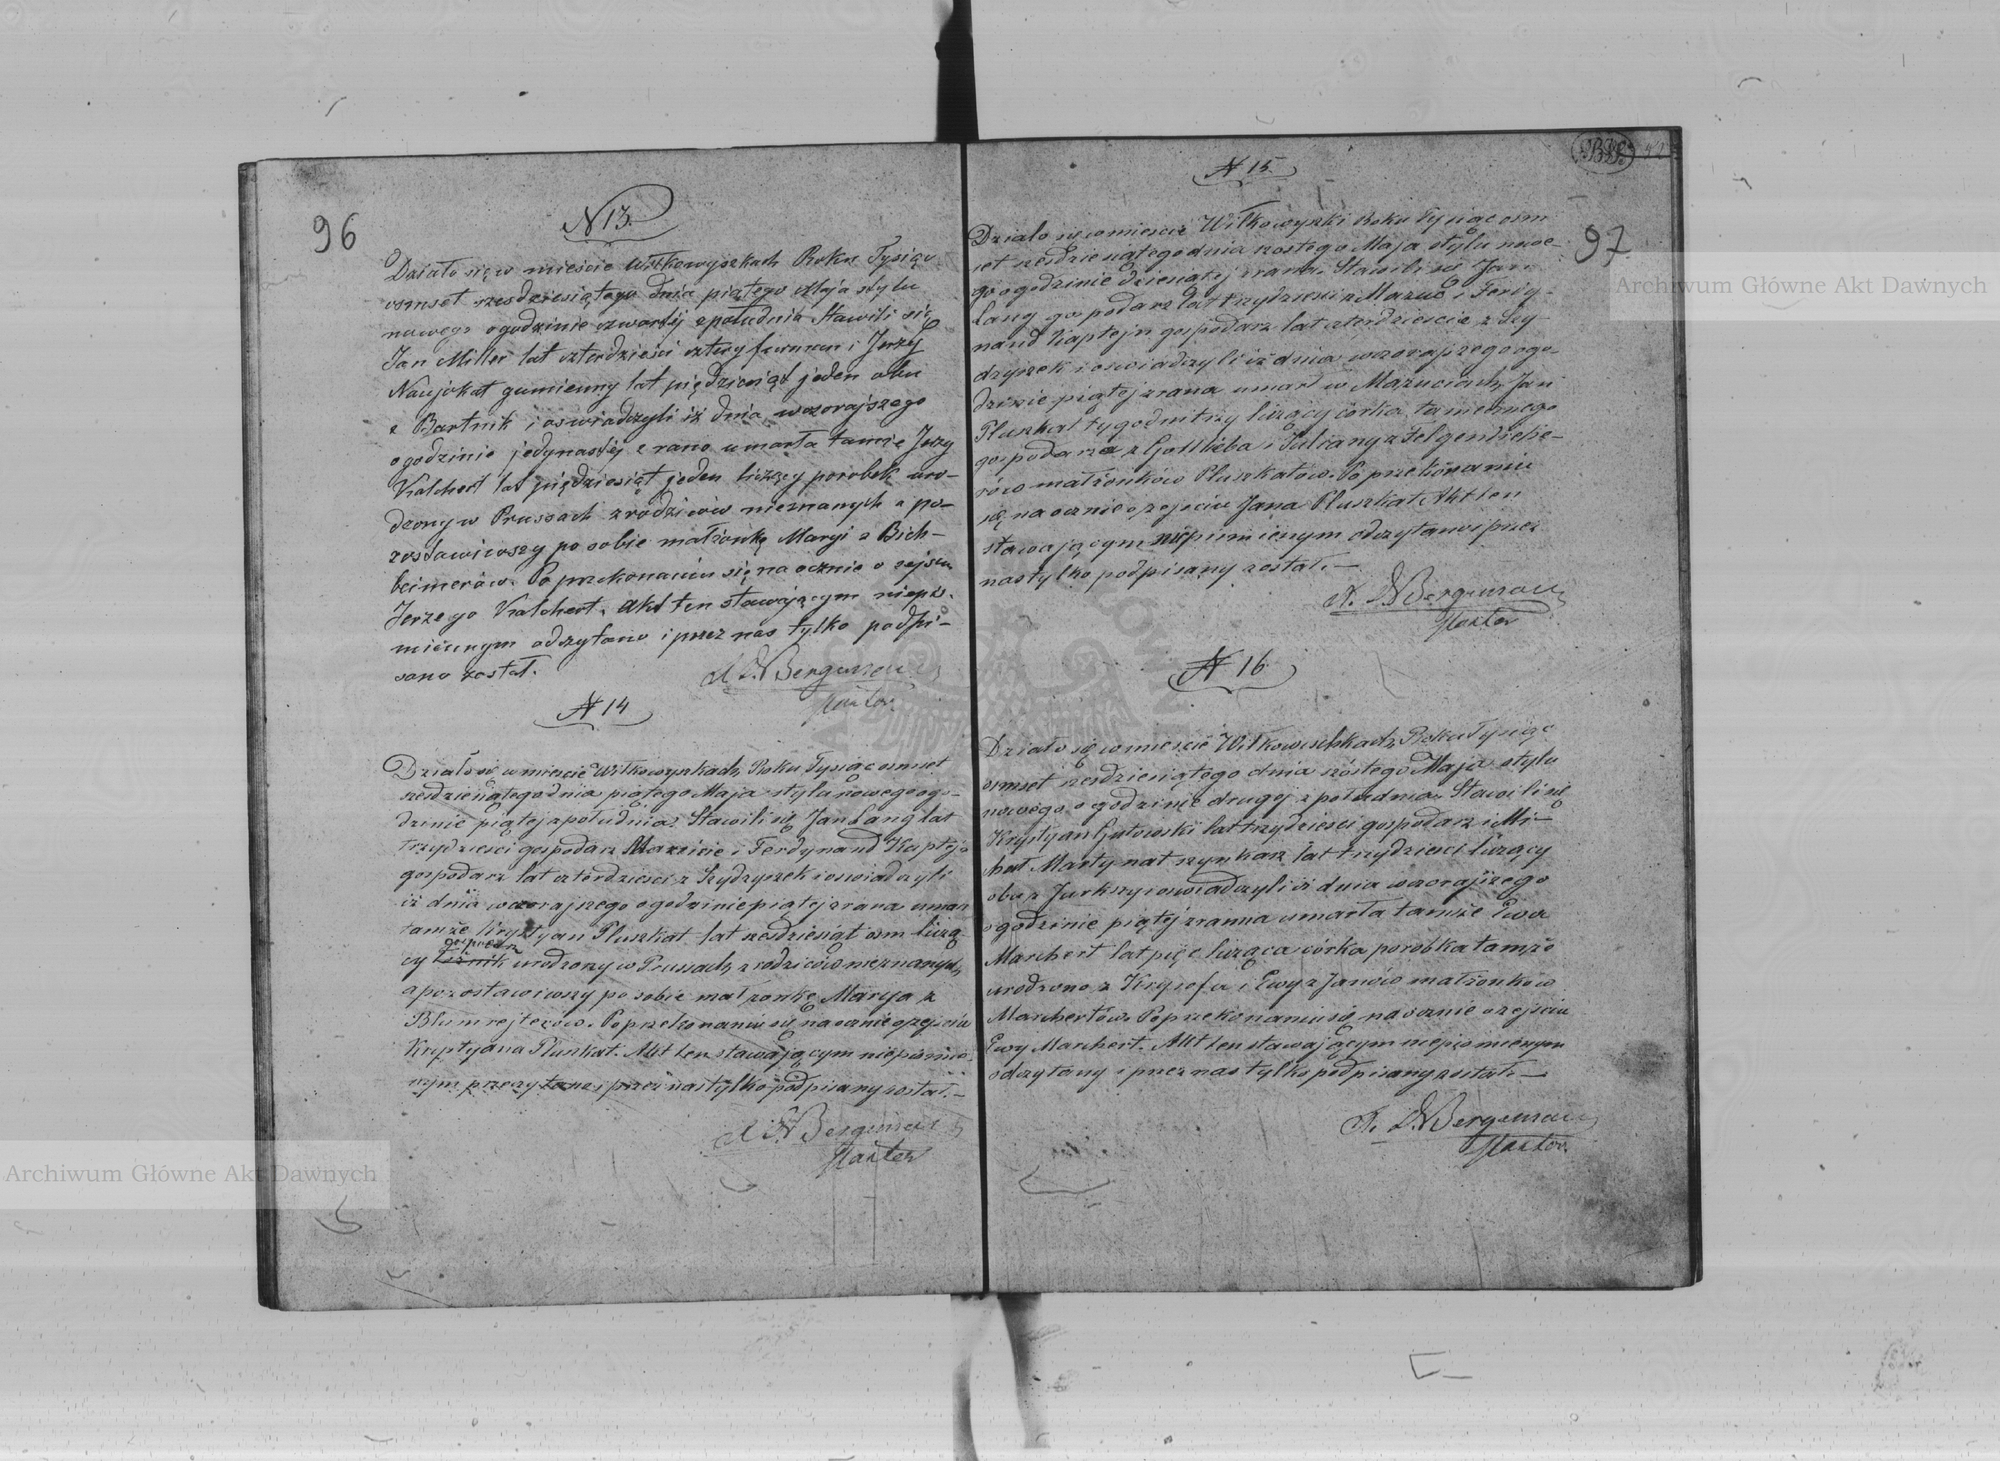 96
N 13.
Działo się w mieście Wiłkowyszkach Roku Tysiąc
osmset szesdziesiątego dnia piątego Maja stylu
nowego o godzinie czwartej z południa Stawili się
Jan Miller lat czterdzieści cztery furman i Jerzy
Naujokat gumienny lat piędziesiąt jeden obu
z Bartnik i oswiadczyli iż dnia wczorajszego
o godzinie jedynastej z rano umarła tamże Jerzy
Kalchert lat pięдziesiąt jeden liczący porobek uro-
dzony w Prussach z rodziców nieznanych a po-
zostawiwszy po sobie małżonkę Maryi z Bich-
beimerów. Po przekonaniu się na ocznie o zejsciu
Jerzego Kalchert, Akt ten stawającym niepis-
miennym odczytano i przez nas tylko podpi-
sano został.
A. D. Bergmann
Pastor.
N 14
Działo się w miescie Wiłkowyszkach, Roku Tysiąc osmset
szesdziesiątego dnia piątego Maja stylu nowego o go-
dzinie piątej z południa. Stawili się Jan Lang lat
trzydziesci gospodarz Mazucie i Ferdynand Kaptejn
gospodarz lat czterdziesci z Szydzyszek i oswiadczyli
iż dnia wczorajszego o godzinie piątej z rana umarł
tamże Krystyan Pluszkat lat szesdziesiąt osm liczą-
gospodarz
cy urodzony w Prusach, z rodziców nieznanych,
a pozostawiwszy po sobie małżonkę Marya z
Blumrejterów. Po przekonaniu się na ocznie o zejsciu
Krystyana Pluszkat. Akt ten stawającym niepismie-
nym przeczytano i przez nas tylko podpisany został.—
A. D. Bergmann
Pastor
97.
N 15
Działo się w miescie Wiłkowyszki Roku Tysiąc osm
set szesdziesiątego dnia szostego Maja stylu nowe-
go o godzinie dziewiątej z rana. Stawili się Jan
Lang gospodarz lat trzydziesci z Mazuć i Ferdy-
nand Kaptejn gospodarz lat czterdziescie z Szy-
dzyszek i oswiadczyli iż dnia wczorajszego o go-
dzinie piątej z rana umarł w Mazuciach, Jan
Pluszkat tygodni trzy liczący córka tamecznego
gospodarza z Gottlieba i Julianny z Felgendrehe-
rów małżonków Pluszkatów. Po przekonaniu
się na ocznie o zejsciu Jana Pluszkat Akt ten
stawającym niepismienym odczytano i przez
nas tylko podpisany został.—
A. D. Bergmann
Pastor
N 16
Działo się w miescie Wiłkowischkach, Roku Tysiąc
osmset szesdziesiątego dnia szóstego Maja stylu
nowego o godzinie drugej z południa. Stawili się
Krystyan Gutowski lat trzydziesci gospodarz i Mi-
chał Martynat szynkarz lat trzydziesci liczący
oba z Jurkszy i oswiadczyli iż dnia wczorajszego
o godzinie piątej z ranna umarła tamże Ewa
Marchert lat pięc licząca córka porobka tamże
urodzona z Krysofa i Ewy z Janów małżonków
Marchertów. Po przekonaniu się na ocznie o zejściu
Ewy Marchert. Akt ten stawającym niepismienym
odczytany i przez nas tylko podpisany został.—
A. D. Bergmann
Pastor.
Archiwum Główne Akt Dawnych
Archiwum Główne Akt Dawnych